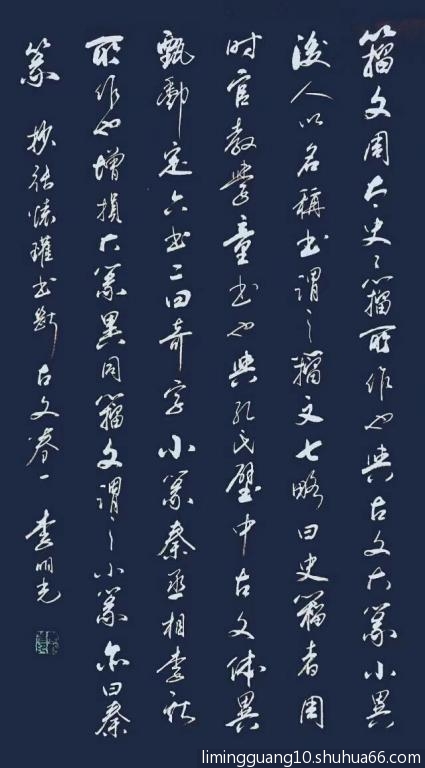 籀文周太史史籀所作也與古文大篆小異
後人以名稱书謂之籀文七略曰史籀者周
时官教學童书也與孔氏壁中古文体異
甄酆定六书二曰奇字小篆秦丞相李斯
所作也增損大篆異同籀文謂之小篆亦曰秦
篆 抄張懷瓘书斷 古文卷一 李明光
limingguang10.shuhua66.com